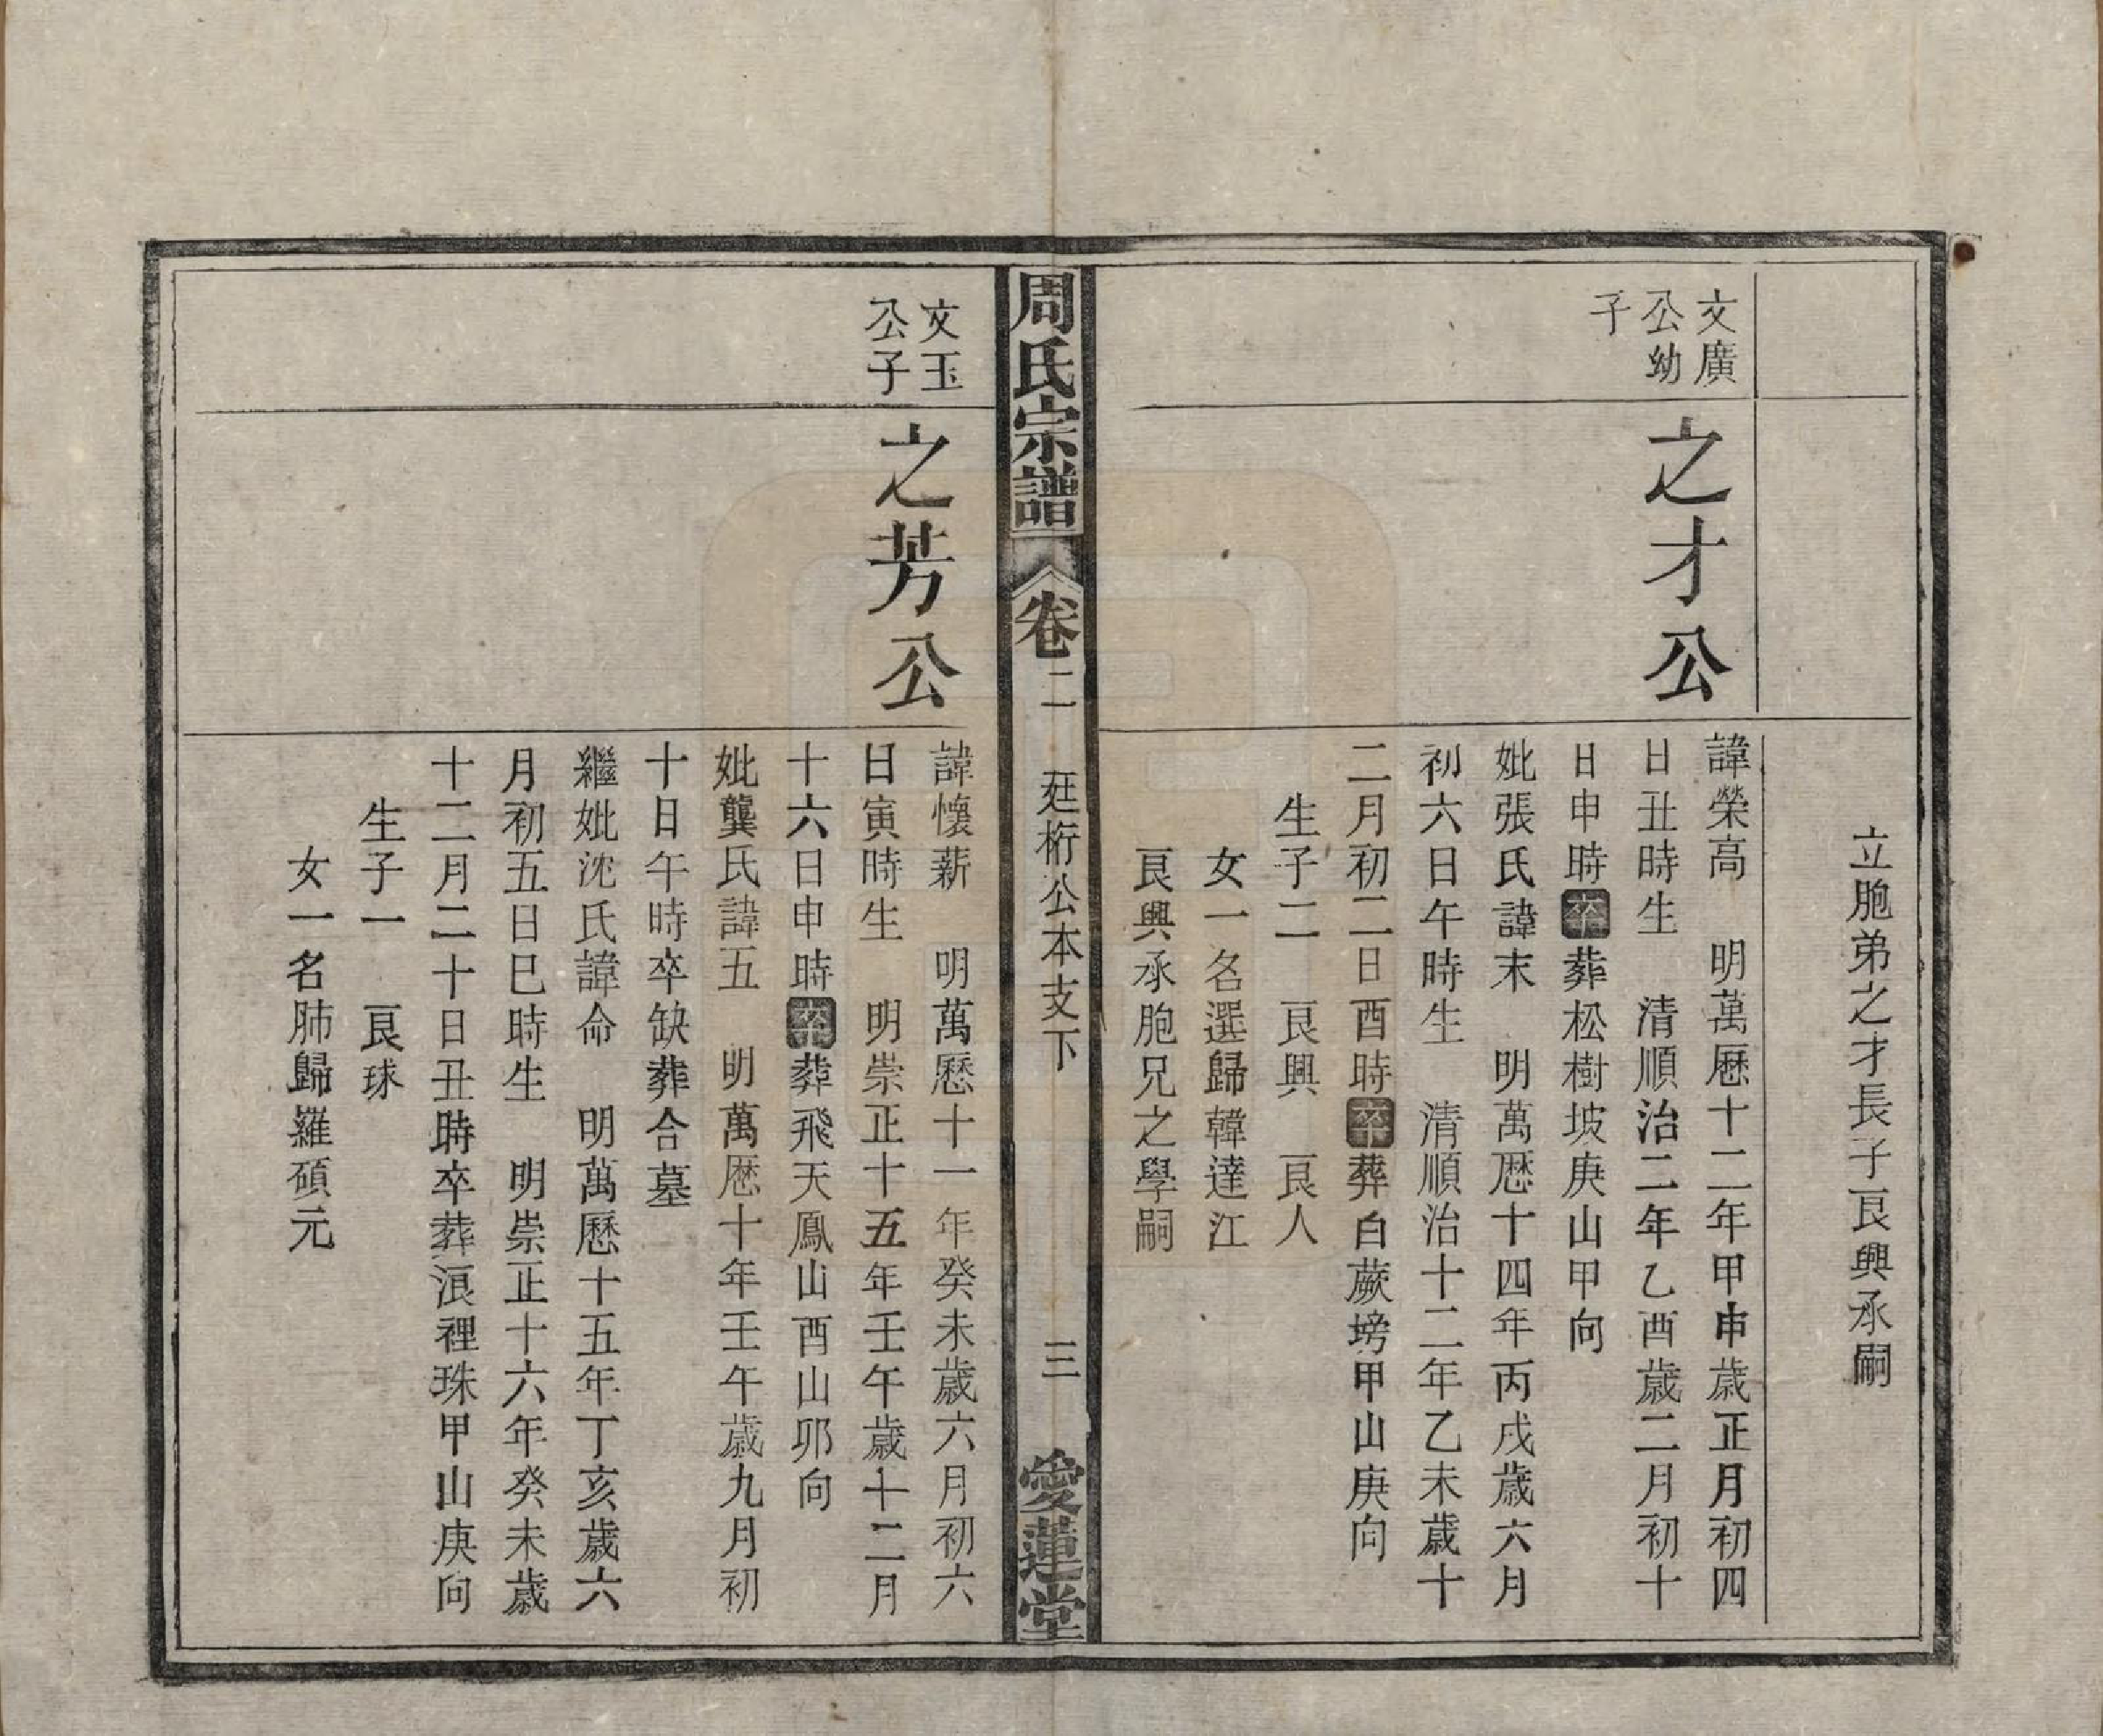 立胞弟之才長子艮興承嗣
文廣
公幼
子
之才公
諱榮高　明萬曆十二年甲申歲正月初四
日丑時生　清順治二年乙酉歲二月初十
日申時卒葬松樹坡庚山甲向
妣張氏諱末　明萬厯十四年丙戌歲六月
初六日午時生　清順治十二年乙未歲十
二月初二日酉時卒葬白蕨塝甲山庚向
生子二　艮興　艮人
女一名選歸韓達江
艮興承胞兄之學嗣
周氏宗譜　卷二　廷桁公本支下　三　愛蓮堂
文玉
公子
之芳公
諱懷薪　明萬曆十一年癸未歲六月初六
日寅時生　明崇正十五年壬午歲十二月
十六日申時卒葬飛天鳳山酉山卯向
妣龔氏諱五　明萬厯十年壬午歲九月初
十日午時卒缺葬合墓
繼妣沈氏諱命　明萬曆十五年丁亥歲六
月初五日巳時生　明崇正十六年癸未歲
十二月二十日丑時卒葬浪裡珠甲山庚向
生子一　艮球
女一名肺歸羅碩元